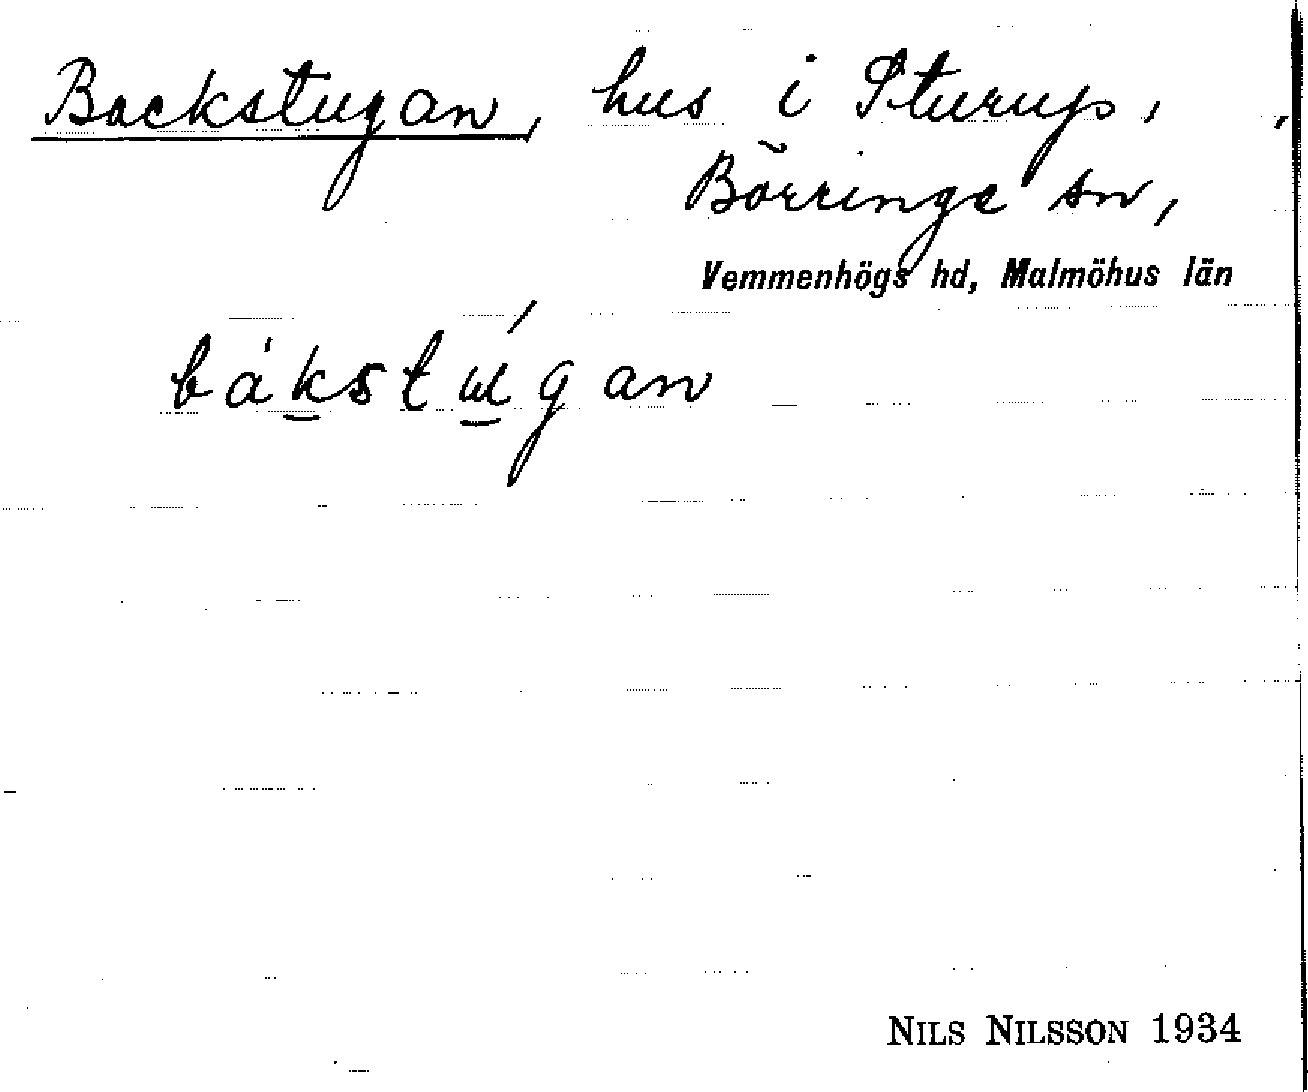 Backstugan, hus i Sturup,
Börringe sn,
Vemmenhögs hd, Malmöhus län
bákstúgan
NILS NILSSON 1934